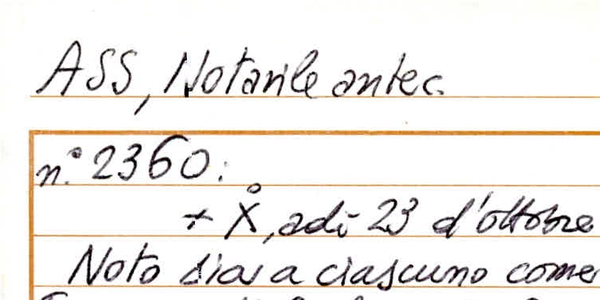 ASS, Notarile antec.
n.° 2360:
+ X°, adì 23 d'ottobre
Noto sia a ciascuno come